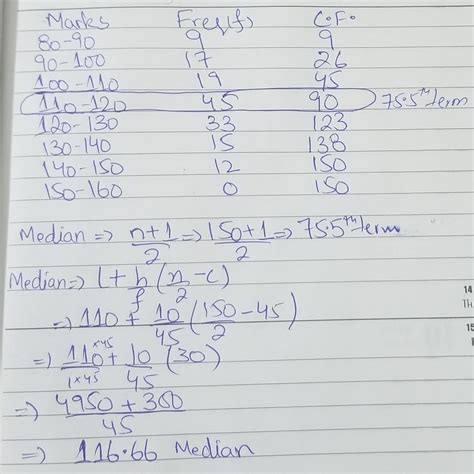 Marks Freq(f) C.F.
80-90 9 9
90-100 17 26
100-110 19 45
110-120 45 90 75.5th term
120-130 33 123
130-140 15 138
140-150 12 150
150-160 0 150
Median => n+1/2 => 150+1/2 => 75.5th term
Median => l + h/f (n/2 - c)
=> 110 + 10/45 (150/2 - 45)
=> 110 ×45/1×45 + 10/45 (30)
=> 4950 + 300/45
=> 116.66 Median
14
Th
15